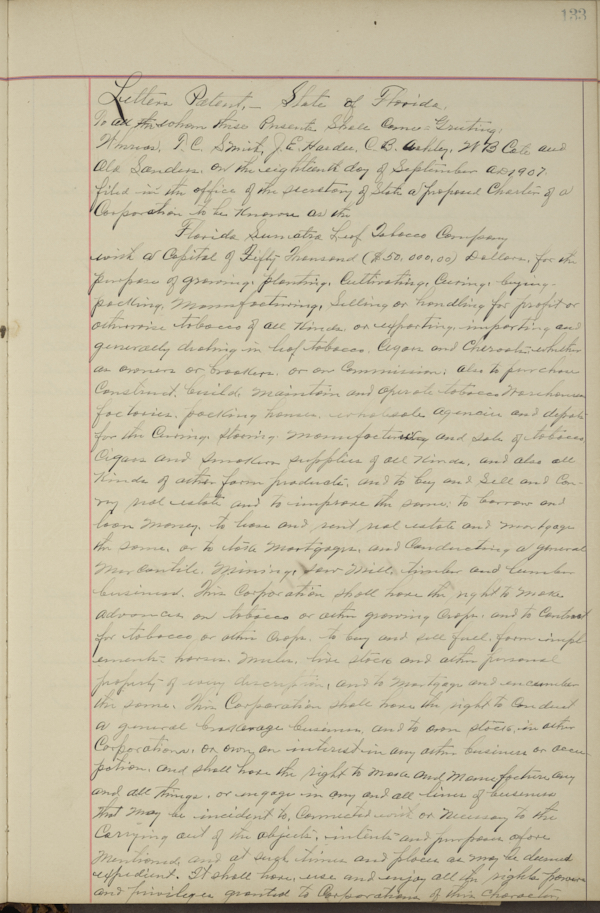 133
Letters Patent, – State of Florida.
To all to whom these Presents Shall Come = Greeting:
Whereas, T. C. Smith, J. E. Hardee, C. B. Ashley, W B Cate and
Ola Sanders. on the eighteenth day of September AD 1907.
filed in the office of the secretary of State a proposed Charter of a
Corporation to be Known as the
Florida Sumatra Leaf Tobacco Company
with a Capital of Fifty Thousand ($50,000,00) Dollars, for the
purpose of growing, planting, Cultivating, Curing, buying-
packing, Manufacturing, Selling or handling for profit or
otherwise tobacco of all Kinds. or exporting, importing and
generally dealing in leaf tobacco. Cigars and Cheroots, whether
as owners or brokers. or on Commission; also to purchase
Construct, build, maintain and operate tobacco Warehouses
factories, packing houses, wholesale agencies and depots
for the Curing, Storing, Manufacturing and sale of tobacco
Cigars and Smokers supplies of all Kinds. and also all
Kinds of other farm products, and to buy and Sell and Con-
vey real estate and to improve the same; to borrow and
loan Money, to lease and rent real estate and mortgage
the same, or to take Mortgages, and Conducting a general
Mercantile, Mining, Saw Mill, timber and lumber
business. This Corporation shall have the right to make
advances on tobacco or other growing Crops, and to Contract
for tobacco or other Crops. to buy and sell fuel, farm impl-
ements- horses. Mules, live stock and other personal
property of every description, and to Mortgage and encumber
the same. This Corporation shall have the right to Conduct
a general brokerage business, and to own stocks, in other
Corporations; or own an interest in any other business or occu-
pation. and shall have the right to make and Manufacture any
and all things. or engage in any and all lines of business
that may be incident to, Connected with or Necessary to the
Carrying out of the objects, intents and purposes afore
Mentioned, and at such times and places as may be deemed
expedient. It shall have, use and enjoy all the rights powers
and privileges granted to Corporations of this character,